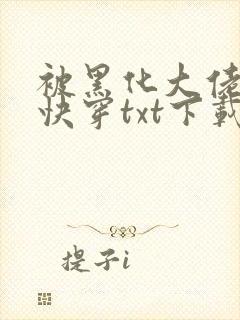 被黑化大佬
快穿txt下载
提子i